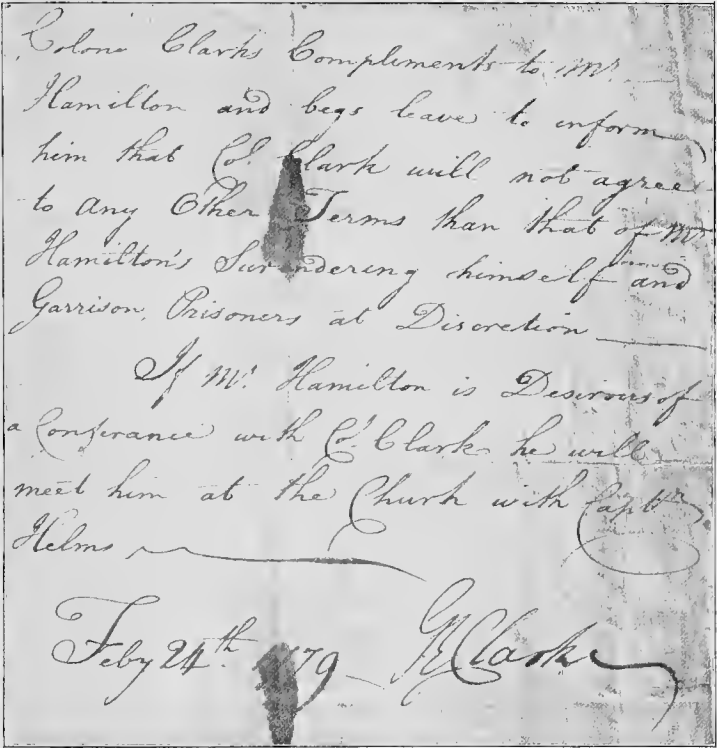 Colone Clarks Compliments to Mr
Hamilton and begs leave to inform
him that Col. Clark will not agree
to any Other Terms than that of Mr
Hamilton's Surendering himself and
Garrison, Prisoners at Discretion
If Mr. Hamilton is Desirous of
a Conferance with Col. Clark he will
meet him at the Church with Captn
Helms
Feby 24th 79 GR Clark